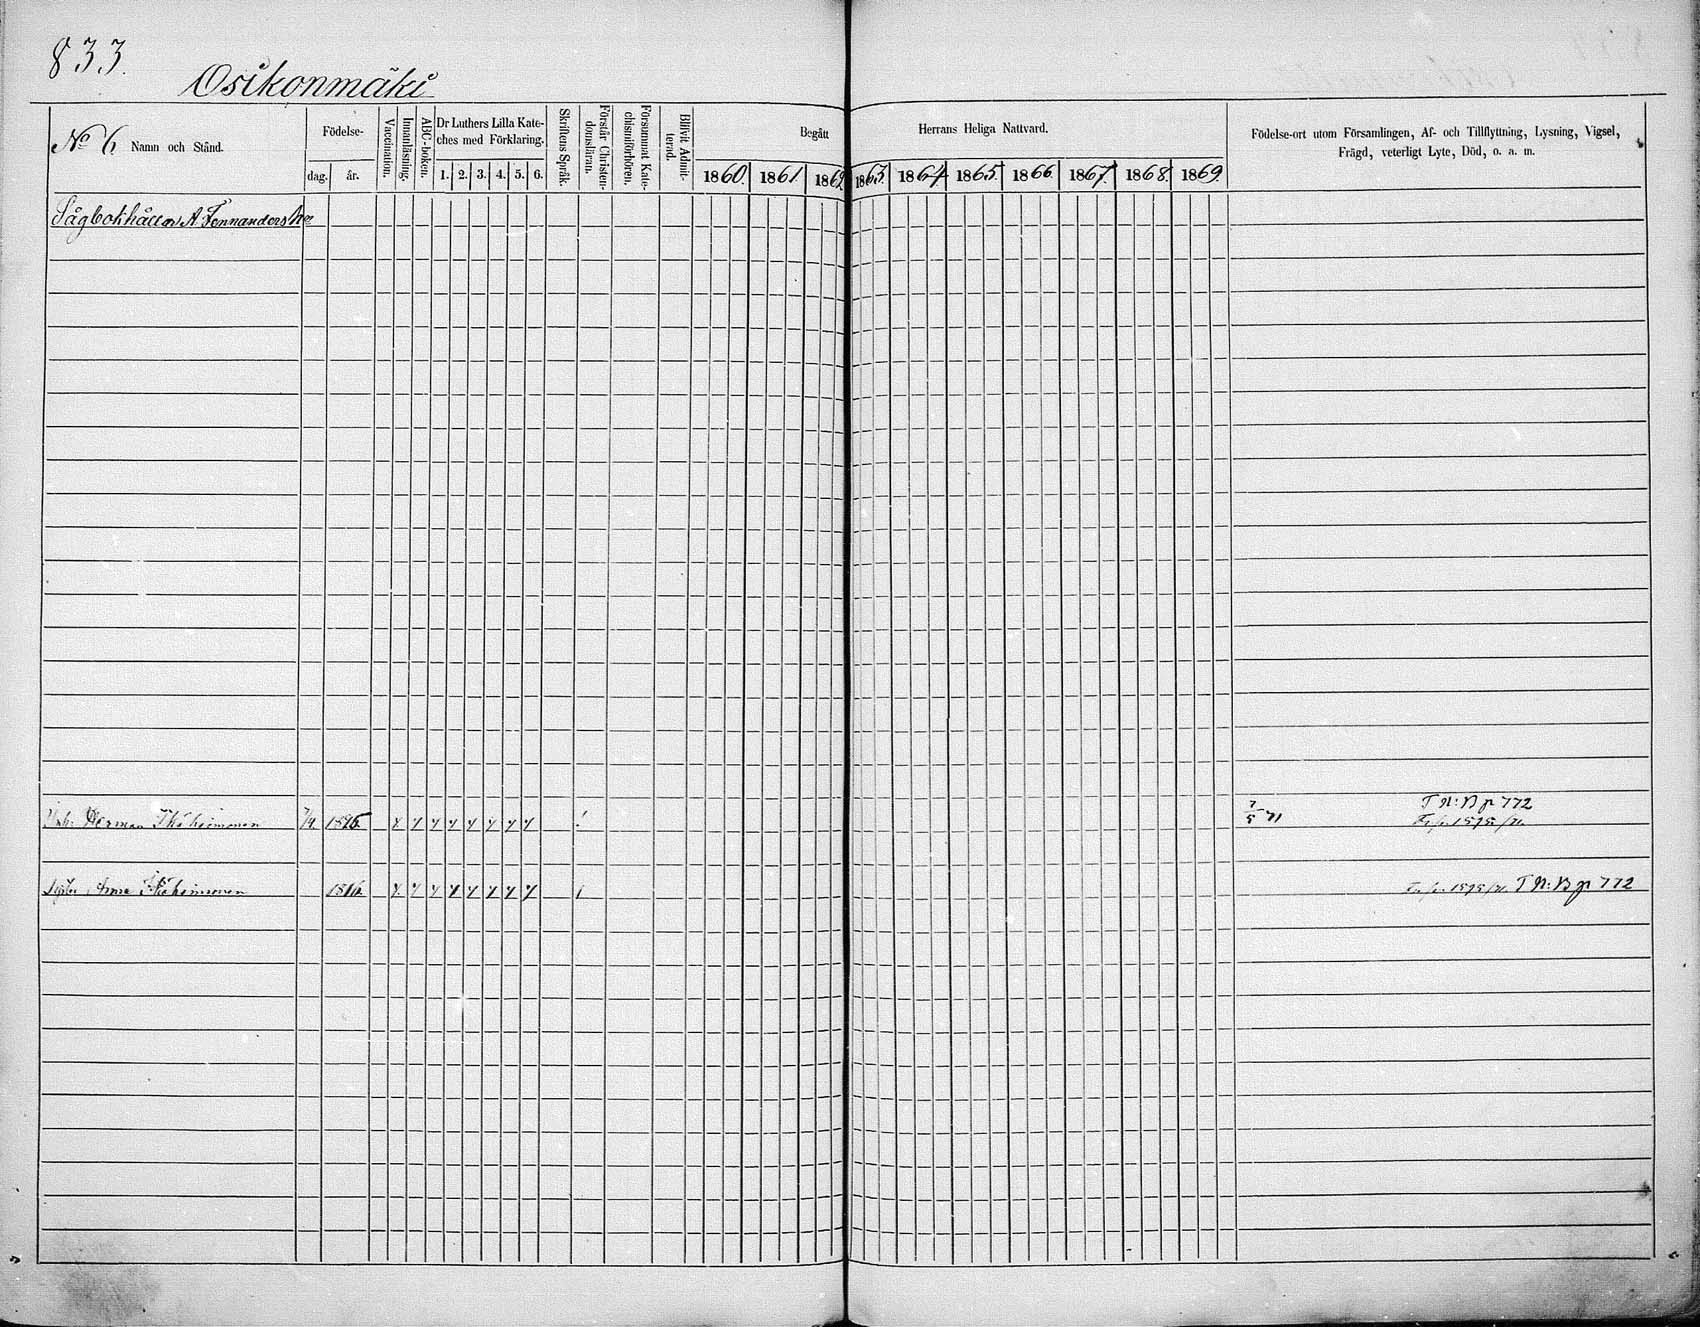 833.
Osikonmäki
No 6 Namn och Stånd.
Födelse-
dag. år.
Vaccination.
Innanläsning.
ABC-boken.
Dr Luthers Lilla Kate-
ches med Förklaring.
1. 2. 3. 4. 5. 6.
Skriftens Språk.
Förstår Christen-
domsläran.
Försummat Kate-
chismiförhören.
Blifvit Admit-
terad.
Begått Herrans Heliga Nattvard.
1860. 1861 1862. 1863. 1864 1865. 1866. 1867. 1868. 1869.
Födelse-ort utom Församlingen, Af- och Tillflyttning, Lysning, Vigsel,
Frägd, veterligt Lyte, Död, o. a. m.
Sågbokhållar A
T N:B p 772
Herman 7/5 71
Anna 1816. T N:B p 772